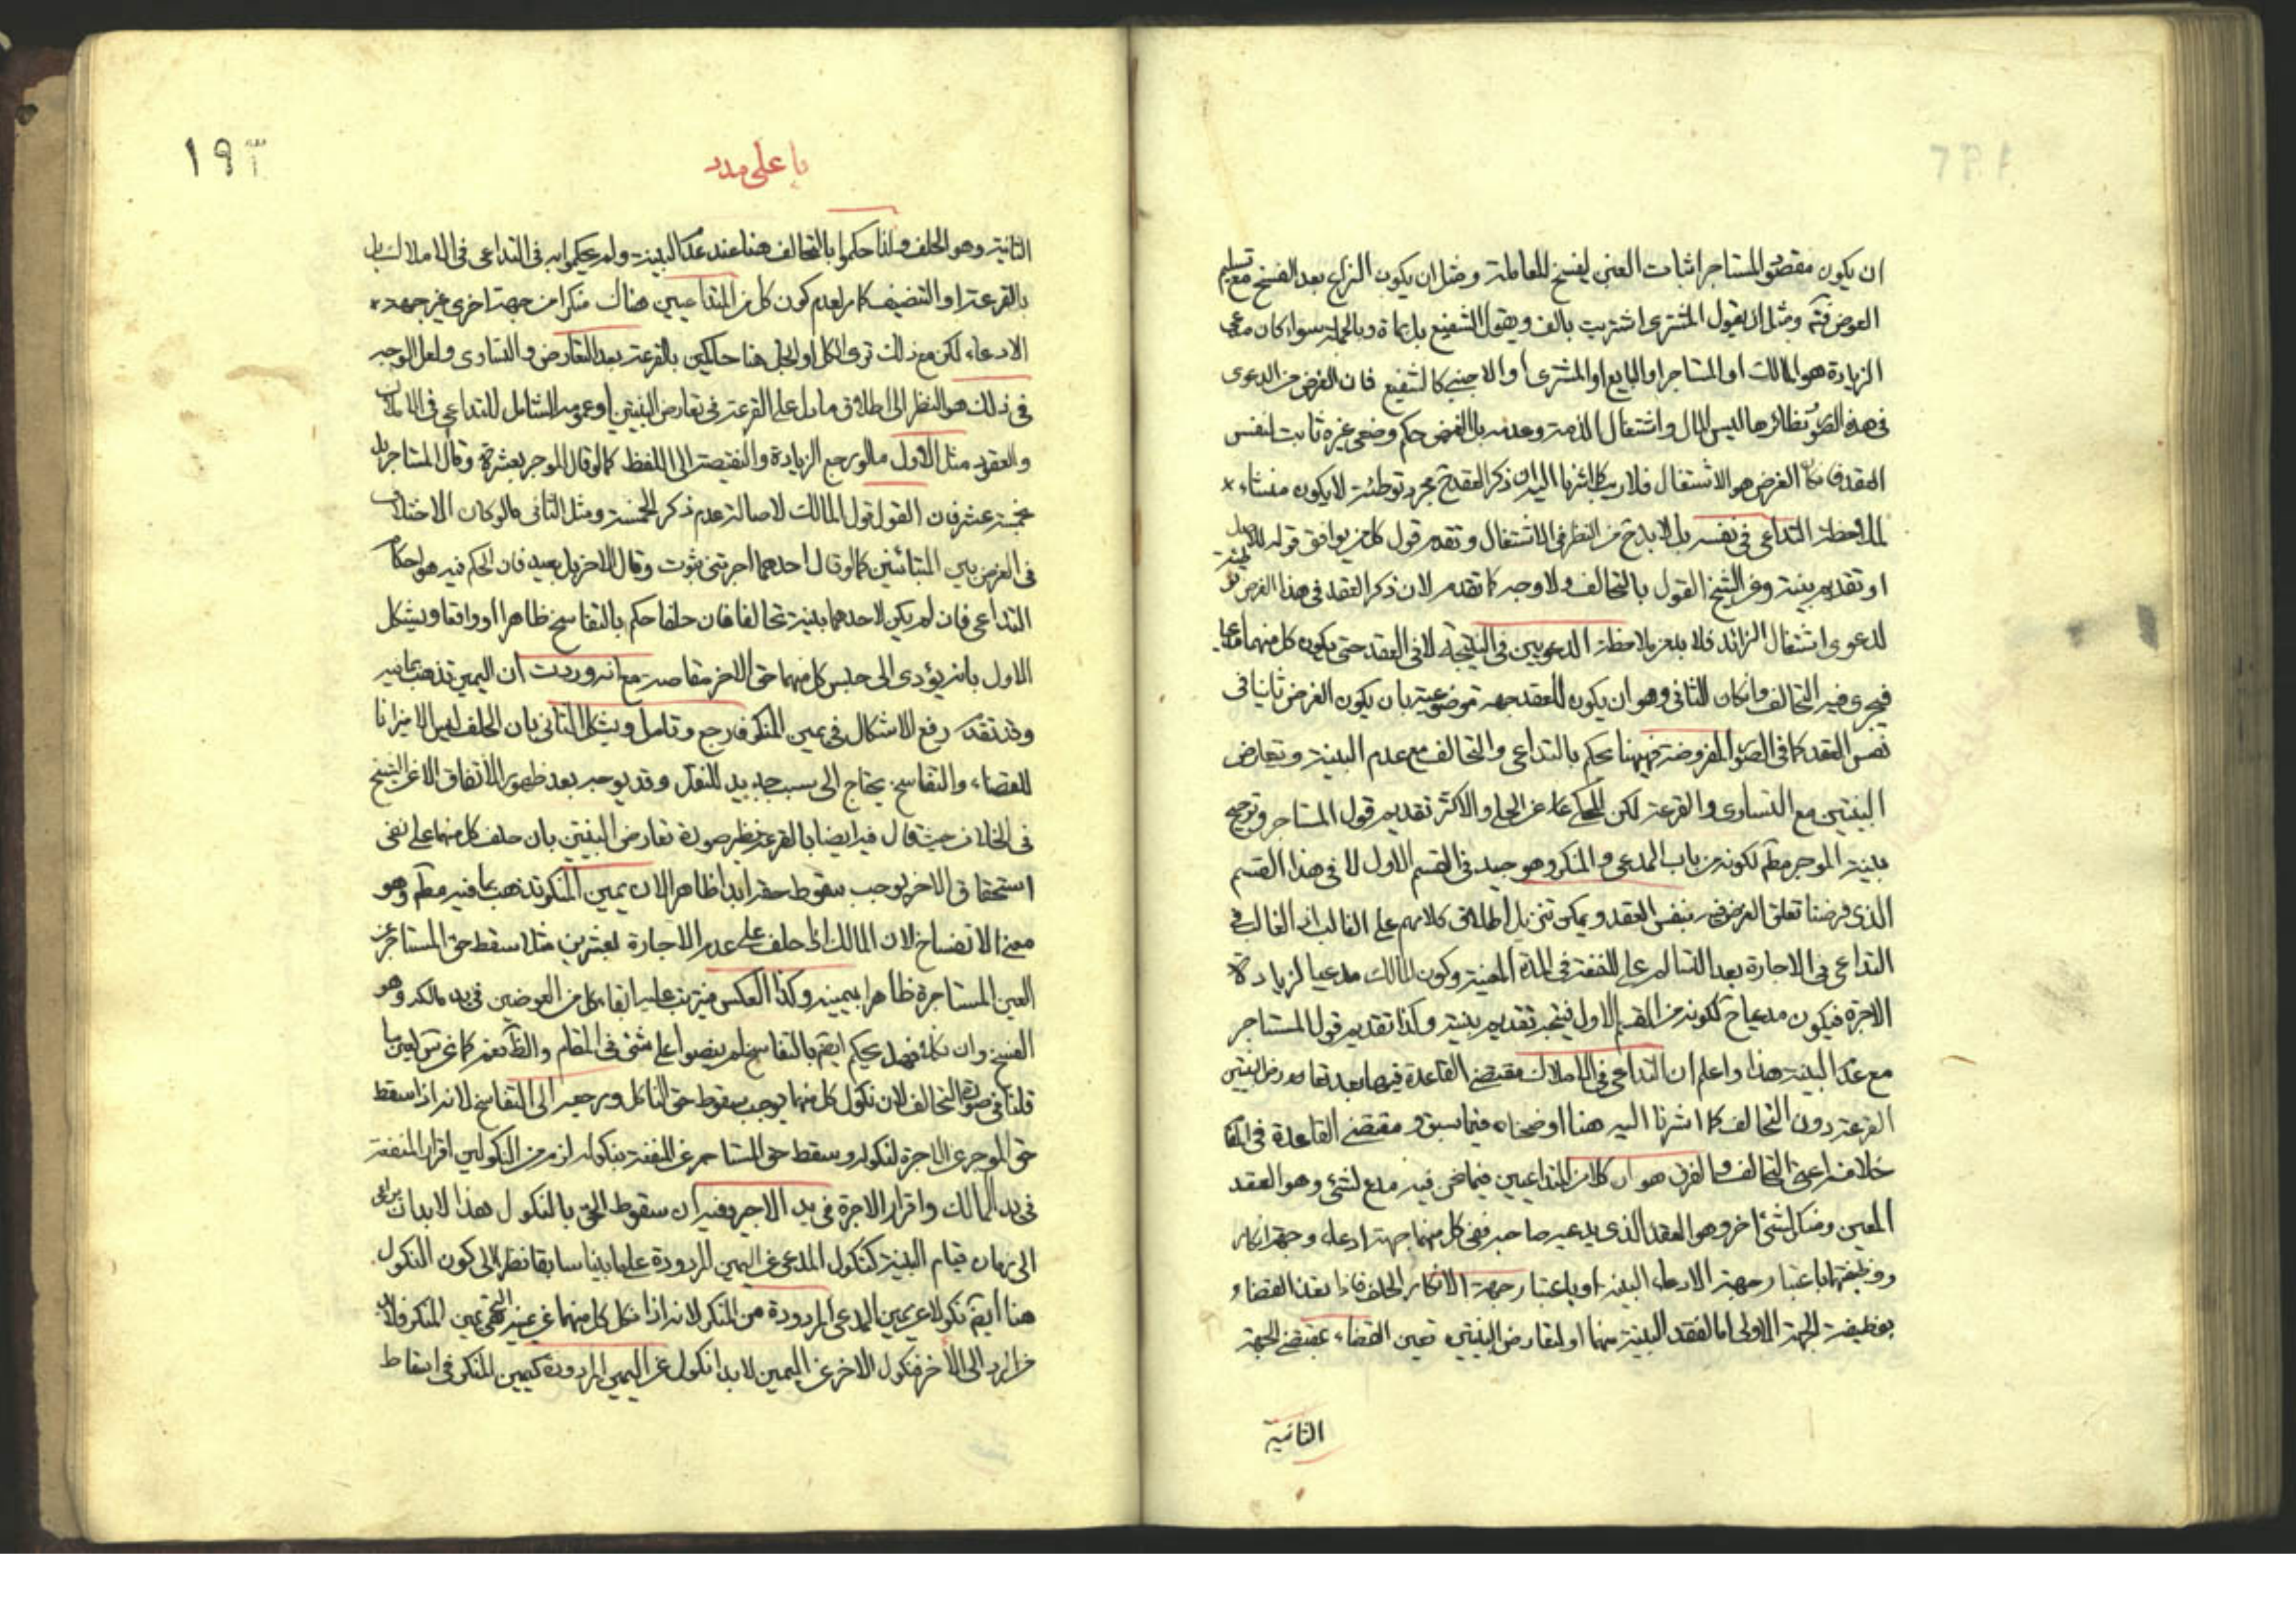 ان يكون مقصود المستاجر اثبات الغبن ليفسخ المعاملة ومثل ان يكون النزاع بعد الفسخ مع تسليم
العوض فته ومثل ان يقول المشترى اشتريت بالف ويقول الشفيع بل بماة وبالجملة سواء كان مدعى
الزيادة هو المالك او المستاجر او البايع او المشترى او الاجنبى كالشفيع فان الغرض من الدعوى
فى هذه الصور ونظائرها ليس المال واشتغال الذمة وعدمه بل الغرض حكم وضعى غيره ثابت لنفس
العقد فان كان الغرض هو الاشتغال فلا ريب كما اشرنا اليه ان ذكر العقد ح مجرد توطئة لا يكون منشاء
لملاحظة التداعى فى نفسه بل لا بد ح من النظر فى الاشتغال وتقديم قول كل من يوافق قوله للاصل
او تقديم بينته وعن الشيخ القول بالتحالف ولا وجه كما تقدم لان ذكر العقد فى هذا الفرض توطئة
لدعوى اشتغال الزائد فلا بد من ملاحظة الدعويين فى النتيجة لا فى العقد حتى يكون كل منهما مدعيا
فيجرى فيه التحالف وان كان الثانى وهو ان يكون للعقد جهة موضوعية بان يكون الغرض ثابتا فى
نفس العقد كما فى الصور المفروضة فههنا يحكم بالتداعى والتحالف مع عدم البينة وتعارض
البينتين مع التساوى والقرعة لكن المحكى عن الحلى والاكثر تقديم قول المستاجر وترجيح
بينة الموجر مطم لكونه من باب المدعى والمنكر وهو جيد فى القسم الاول لا فى هذا القسم
الذى فرضنا تعلق الغرض فيه بنفس العقد ويمكن تنزيل اطلاق كلامهم على الغالب اذ الغالب فى
التداعى فى الاجارة بعد التسالم على المنفعة فى المدة المعينة وكون المالك مدعيا لزيادة
الاجرة فيكون مدعيا ح لكونه من القسم الاول فيتجه تقديم بينته وكذا تقديم قول المستاجر
مع عدم البينة هذا واعلم ان التداعى فى الاملاك مقتضى القاعدة فيها بعد تعارض البينتين
القرعة دون التحالف كما اشرنا اليه هنا اوضحناه فيما سبق ومقتضى القاعدة فى المقام
خلافه اعنى التحالف والفرق هو ان كلا من المتداعيين فيما نحن فيه مدع لشئ وهو العقد
المعين ومنكر لشئ اخر وهو العقد الذى يدعيه صاحبه ففى كل منهما جهة ادعاء وجهة انكار
ووظيفتهما باعتبار جهة الادعاء البينة وباعتبار جهة الانكار الحلف فاذا تعذر القضاء
بوظيفة الجهة الاولى اما لفقد البينة منهما او لتعارض البينتين تعين القضاء بمقتضى الجهة
الثانية
١٩٣
يا على مدد
الثانية وهو الحلف ولذا حكموا بالتحالف هنا عند عدم البينة ولم يحكموا به فى التداعى فى الاملاك بل
بالقرعة او التنصيف كما مر لعدم كون كل من المتداعيين هناك منكرا من جهة اخرى غير جهة
الادعاء لكن مع ذلك ترى الكل او الجل هنا حاكمين بالقرعة بعد التعارض والتساوى ولعل الوجه
فى ذلك هو النظر الى اطلاق ما دل على القرعة فى تعارض البينتين او عمومه الشامل للتداعى فى الاملاك
والعقود مثل الاول ما لو رجع الزيادة والنقيصة الى اللفظ كما لو قال الموجر بعشرة وقال المستاجر بل
بخمسة عشر فان القول قول المالك لاصالة عدم ذكر الخمسة ومثل الثانى ما لو كان الاختلاف
فى العرض بين المتبائنين كما لو قال احدهما اجرتنى بثوب وقال الاخر بل بعبد فان الحكم فيه هو احكام
التداعى فان لم يكن لاحدهما بينة تحالفا فان حلفا حكم بالتفاسخ ظاهرا او واقعا ويشكل
الاول بانه يؤدى الى حبس كل منهما حق الاخر مقاصة مع انه وردت ان اليمين تذهب بما فيه
وقد تقدم رفع الاشكال فى يمين المنكر فارجع وتامل ويشكل الثانى بان الحلف ليس الا ميزانا
للقضاء والتفاسخ يحتاج الى سبب جديد للنقل وقد يوجه بعد ظهور الاتفاق الا عن الشيخ
فى الخلاف حيث قال فيه ايضا بالقرعة نظير صورة تعارض البينتين بان حلف كل منهما على نفى
استحقاق الاخر يوجب سقوط حقه ابدا ظاهرا لان يمين المنكر تذهب بما فيه مطم وهو
معنى الانفساخ لان المالك اذا حلف على عدم الاجارة بعشرين مثلا سقط حق المستاجر عن
العين المستاجرة ظاهرا بيمينه وكذا العكس فيترتب عليه ابقاء كل من العوضين فى يد مالكه وهو
الفسخ وان نكلا فهل يحكم ايضم بالتفاسخ لم ينصوا على شئ فى المقام والظ نعم كما عرفت لعين ما
قلنا فى صورة التحالف لان نكول كل منهما يوجب سقوط حق الناكل ومرجعه الى التفاسخ لانه اذا سقط
حق الموجر عن الاجرة لنكوله وسقط حق المستاجر عن المنفعة بنكوله لزم من النكولين اقرار المنفعة
فى يد المالك واقرار الاجرة فى يد الاجير وفيه ان سقوط الحق بالنكول هذا لا بد ان يراعى
الى زمان قيام البينة كنكول المدعى عن اليمين المردودة على ما بينا سابقا نظرا الى كون النكول
هنا ايضم نكولا عن يمين المدعى المردودة من المنكر لانه اذا نكل كل منهما عن يمينه التى هى يمين المنكر فلا بد
من الرد الى الاخر فنكول الاخر عن اليمين لا بد انكول عن اليمين المردودة كيمين المنكر فى اسقاط